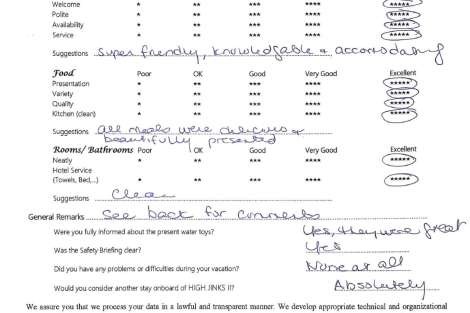 Welcome * ** *** **** *****
Polite * ** *** **** *****
Availability * ** *** **** *****
Service * ** *** **** *****
Suggestions super friendly, knowledgable & accomodating
Food Poor OK Good Very Good Excellent
Presentation * ** *** **** *****
Variety * ** *** **** *****
Quality * ** *** **** *****
Kitchen (clean) * ** *** **** *****
Suggestions all meals were delicious &
beautifully presented
Rooms/ Bathrooms Poor OK Good Very Good Excellent
Neatly * ** *** **** *****
Hotel Service
(Towels, Bed,..) * ** *** **** *****
Suggestions Clean
General Remarks See back for comments
Were you fully informed about the present water toys? Yes, they were great
Was the Safety Briefing clear? Yes
Did you have any problems or difficulties during your vacation? None at all
Would you consider another stay onboard of HIGH JINKS II? Absolutely
We assure you that we process your data in a lawful and transparent manner. We develop appropriate technical and organizational